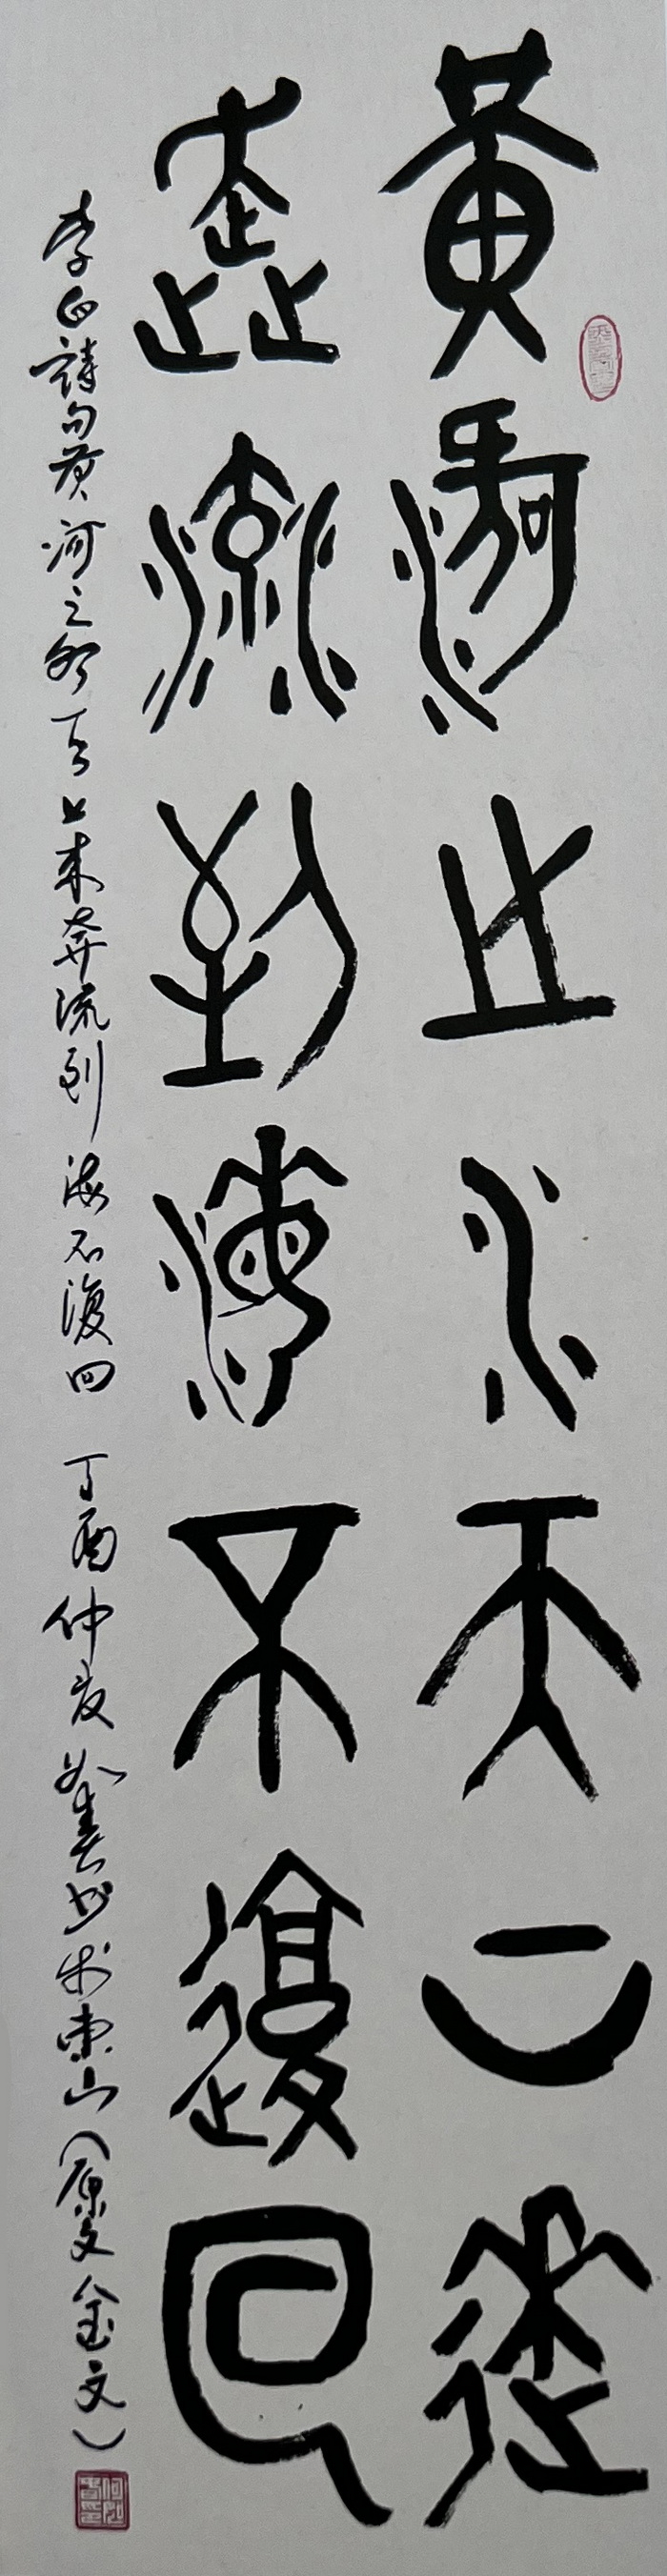 黃河之水天上來
奔流到海不復回
李白詩句黃河之水天上來奔流到海不復回 丁酉仲夏 書於東山（原文金文）